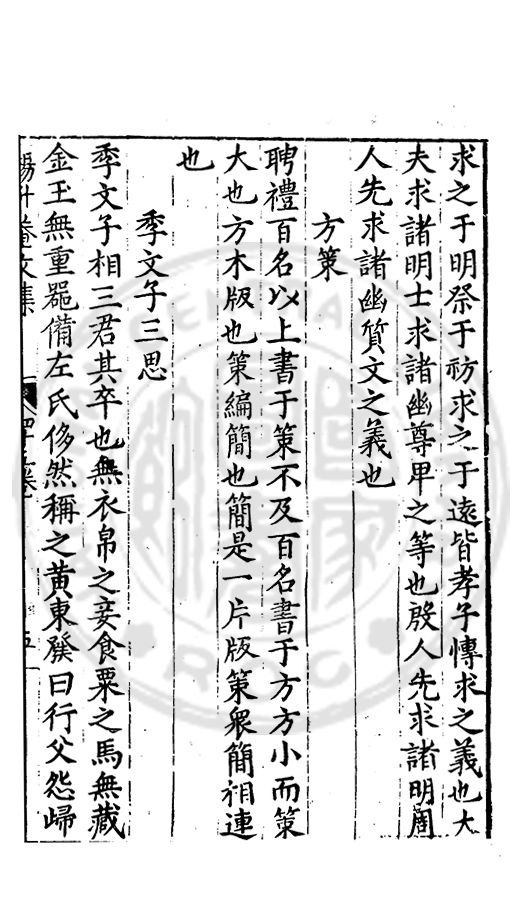 求之于明祭于祊求之于遠皆孝子愽求之義也大
夫求諸明士求諸幽尊卑之等也殷人先求諸明周
人先求諸幽質文之義也
方策
聘禮百名以上書于策不及百名書于方方小而策
大也方木版也策編簡也簡是一片版策衆簡相連
也
季文子三思
季文子相三君其卒也無衣帛之妾食粟之馬無藏
金玉無重器備左氏侈然稱之黄東發曰行父怨歸